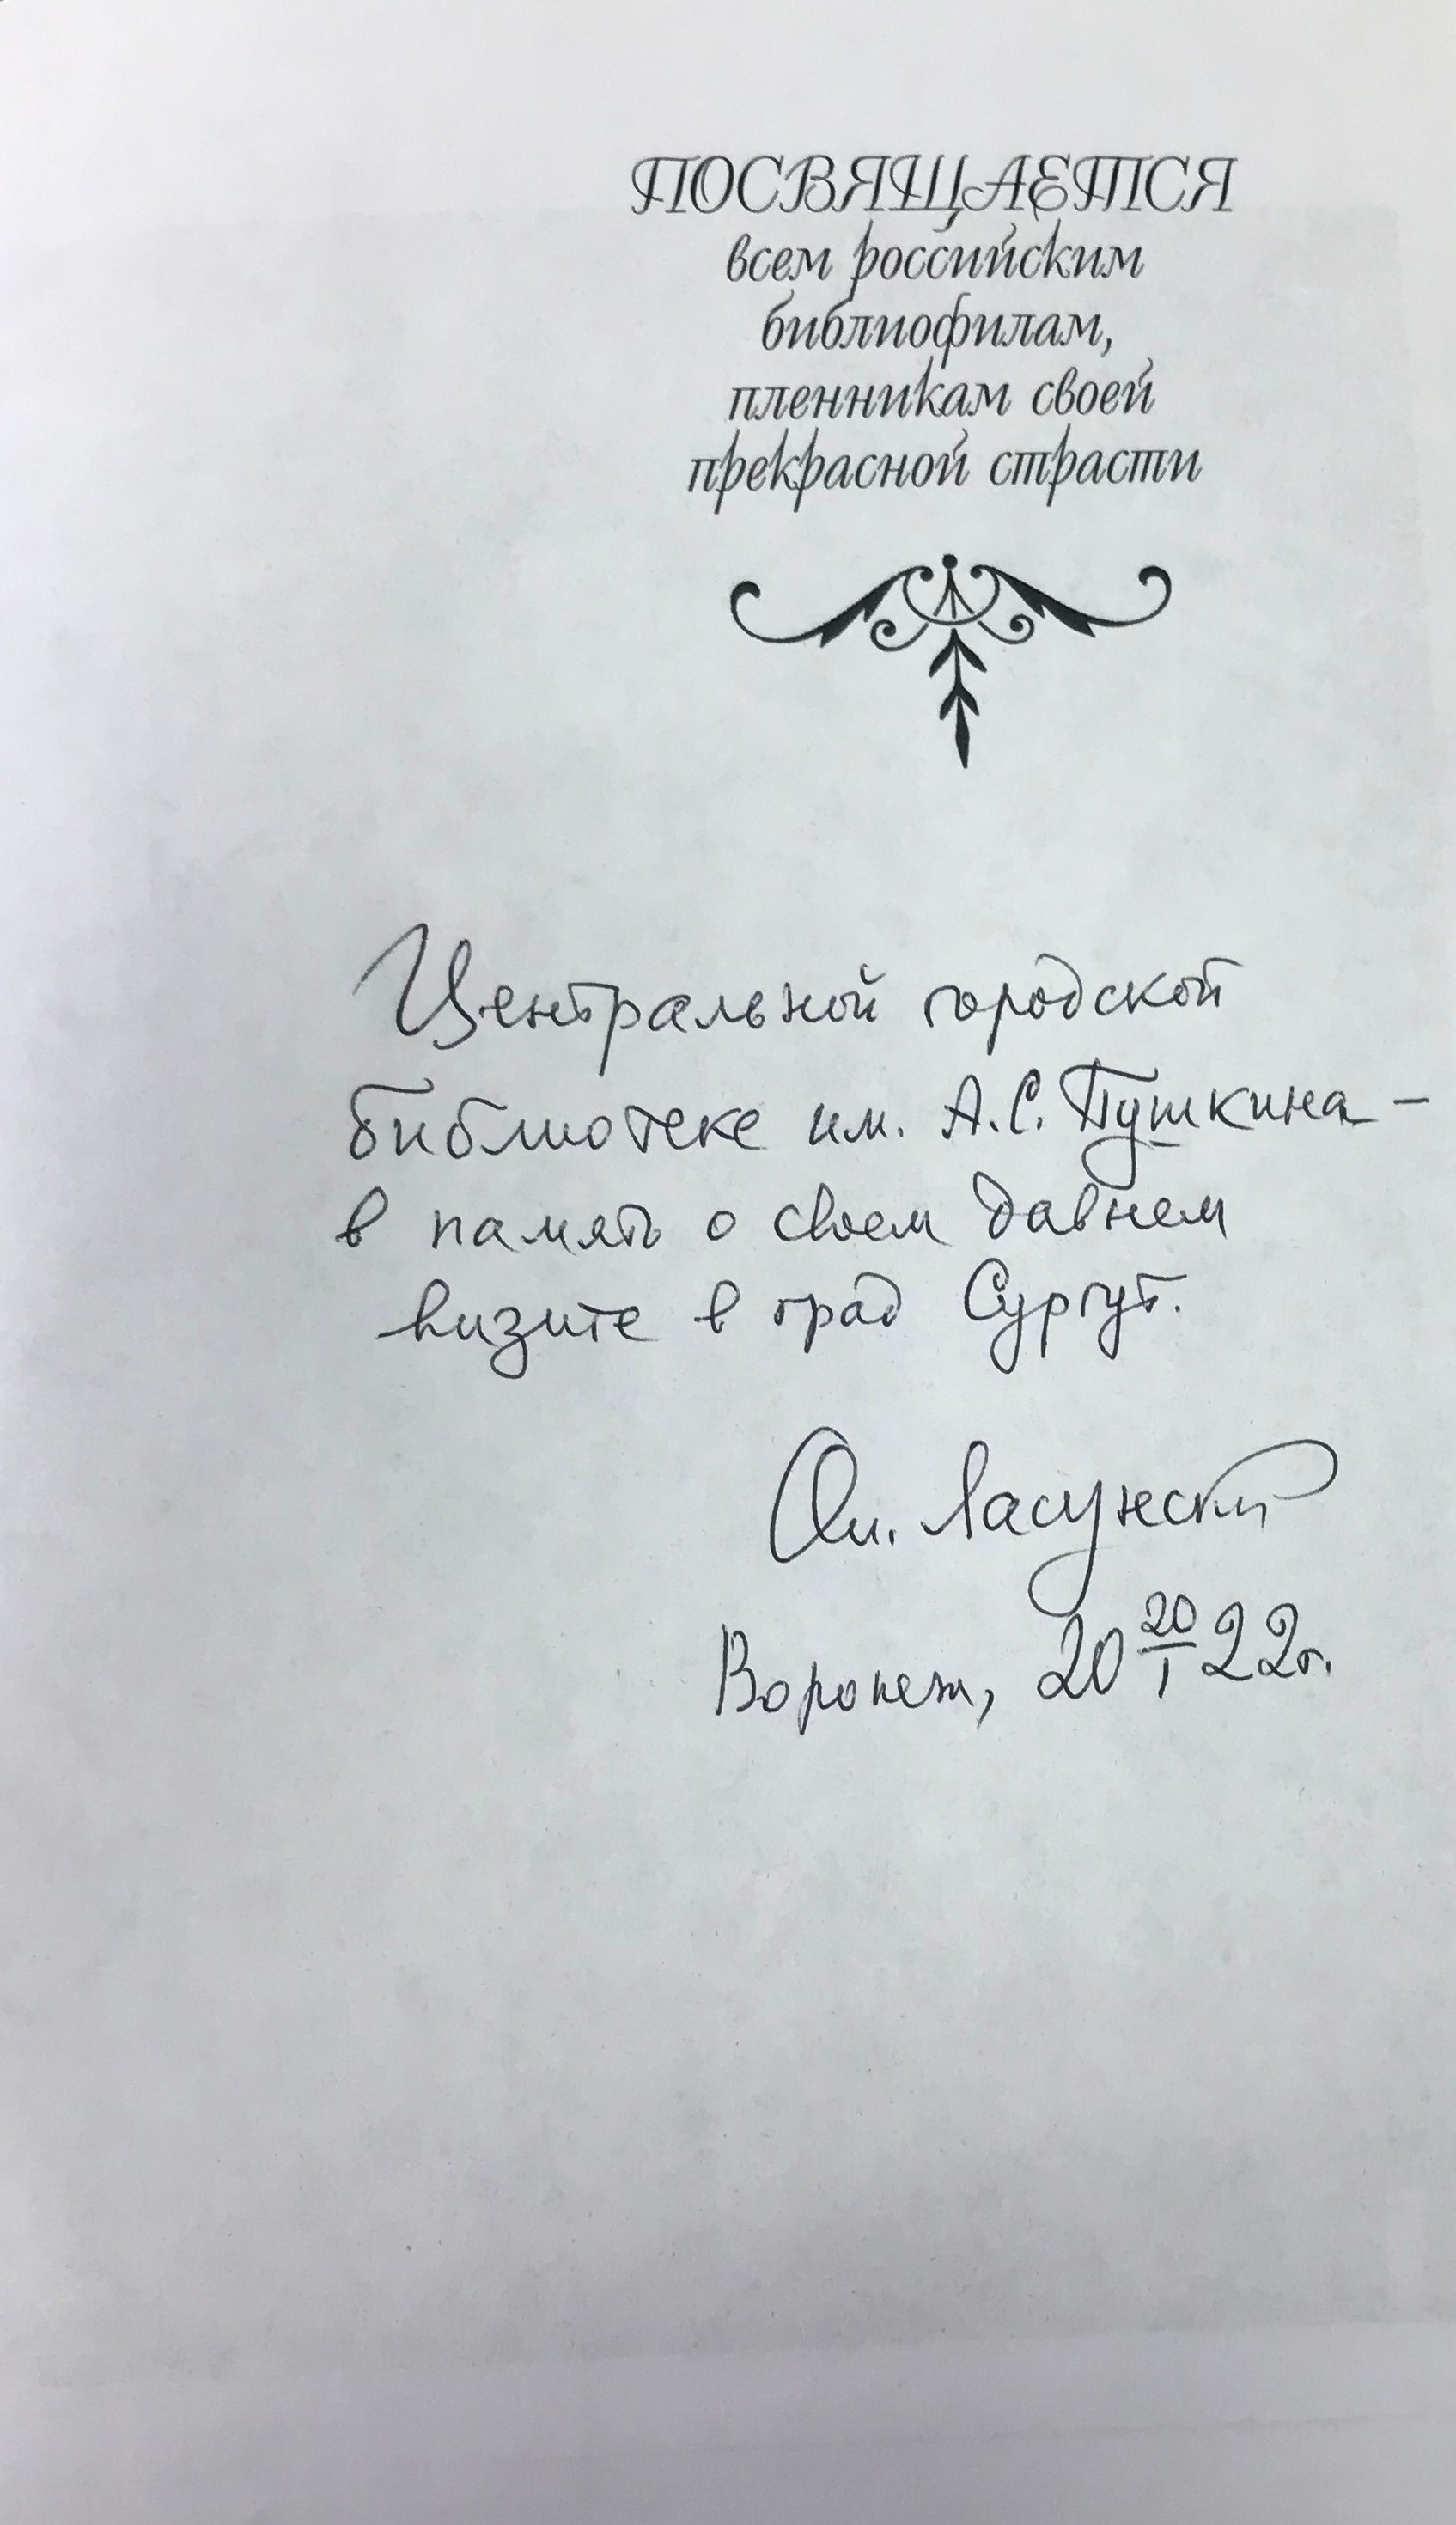 ПОСВЯЩАЕТСЯ
всем российским
библиофилам,
пленникам своей
прекрасной страсти
Центральной городской
библиотеке им. А.С. Пушкина –
в память о своем давнем
визите в град Сургут.
Ол. Ласунский
Воронеж, 20 20/I 22 г.